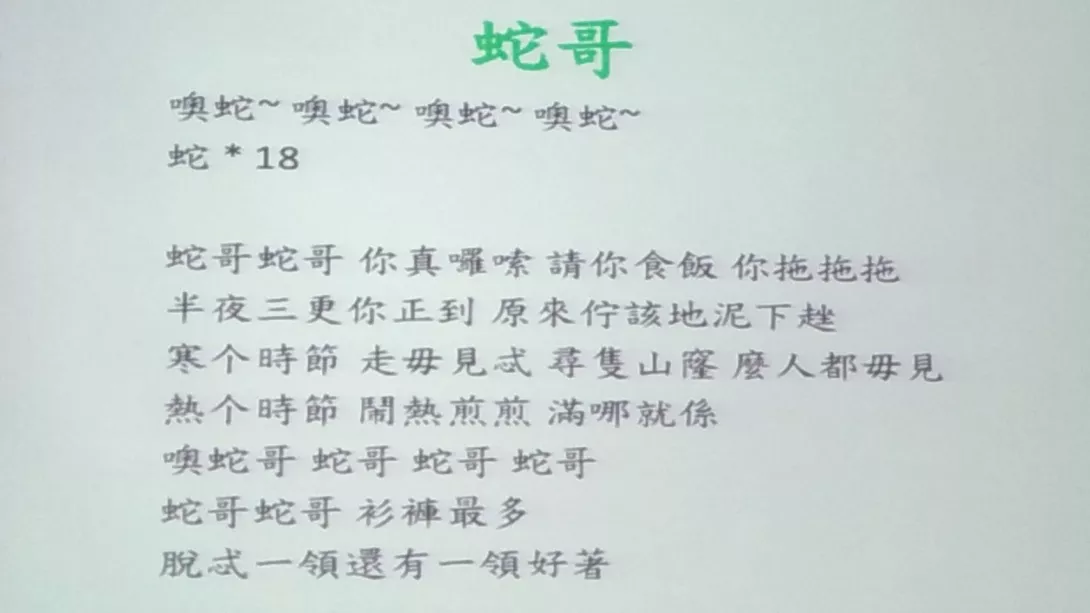 蛇哥
噢蛇~ 噢蛇~ 噢蛇~ 噢蛇~
蛇 * 18
蛇哥蛇哥 你真囉嗦 請你食飯 你拖拖拖
半夜三更你正到 原來佇該地泥下趖
寒个時節 走毋見忒 尋隻山窿 麼人都毋見
熱个時節 鬧熱煎煎 滿哪就係
噢蛇哥 蛇哥 蛇哥 蛇哥
蛇哥蛇哥 衫褲最多
脫忒一領還有一領好著